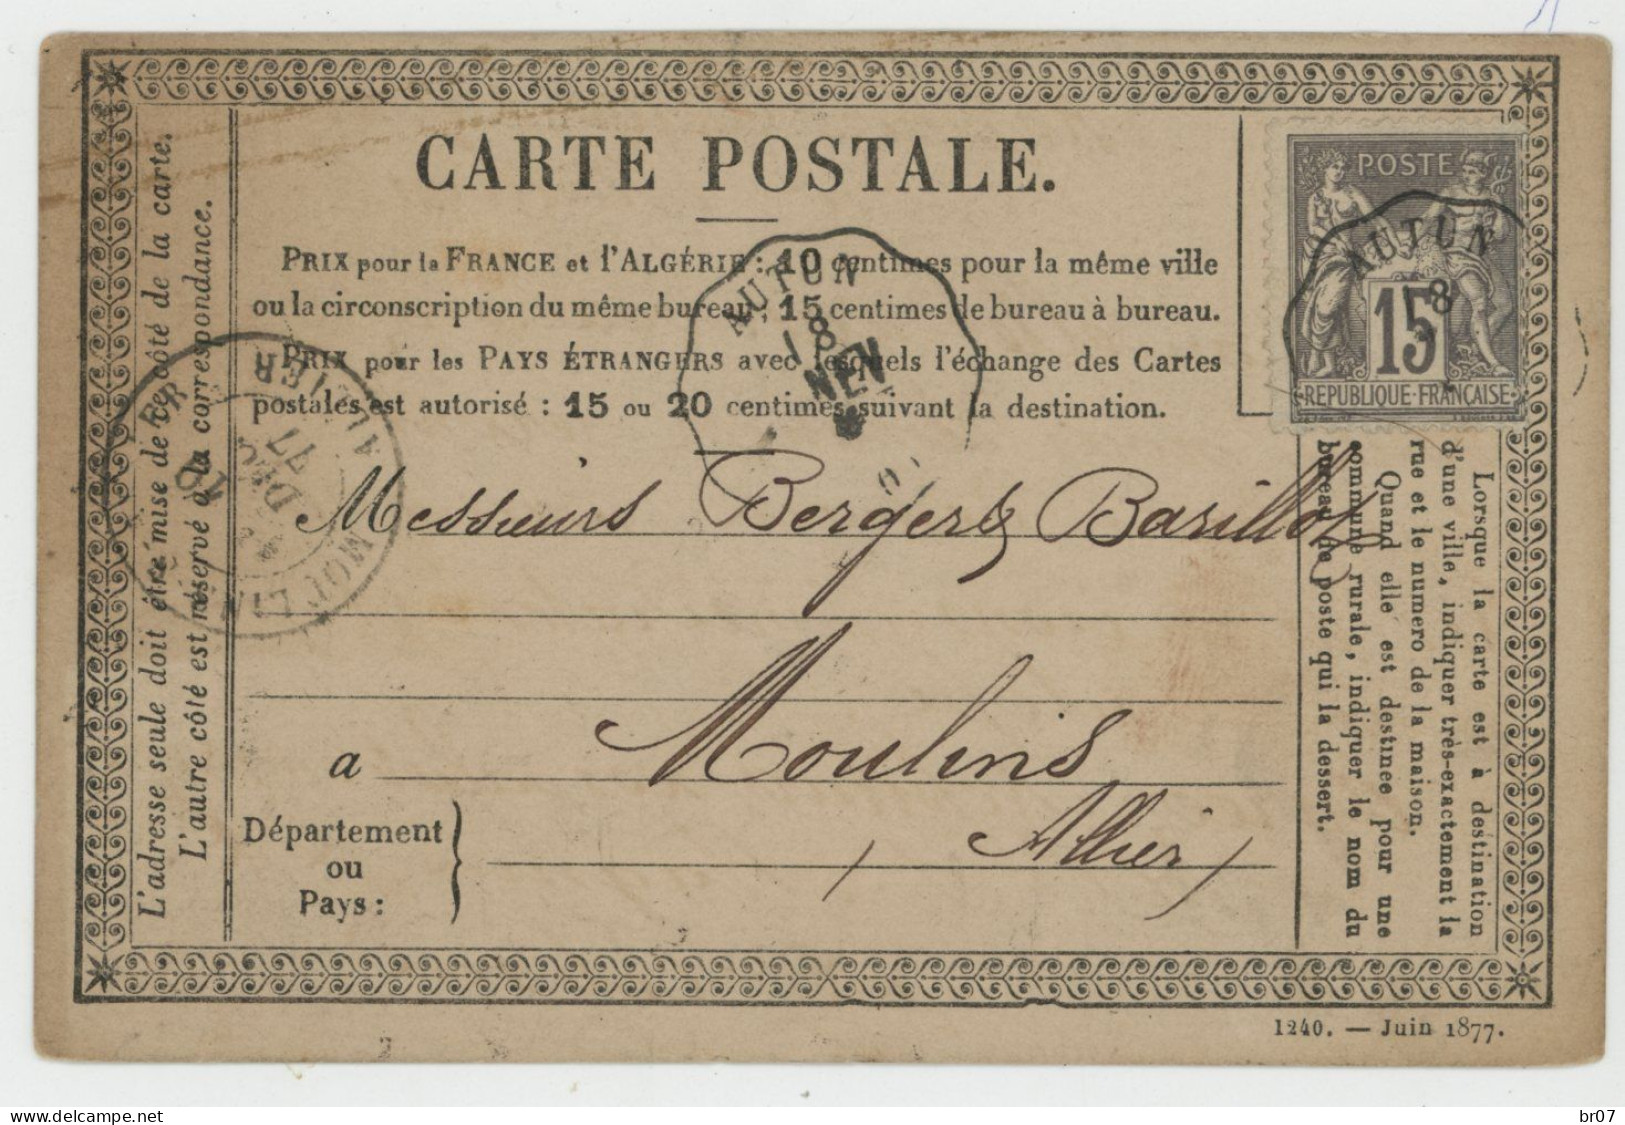 CARTE POSTALE.
PRIX pour la FRANCE et l'ALGÉRIE : 10 centimes pour la même ville
ou la circonscription du même bureau ; 15 centimes de bureau à bureau.
PRIX pour les PAYS ÉTRANGERS avec lesquels l'échange des Cartes
postales est autorisé : 15 ou 20 centimes suivant la destination.
POSTE
15
REPUBLIQUE FRANÇAISE
AUTUN
18
AUTUN
18
MOULINS
ALLIER
DEC
77
Messieurs Berger & Barillot
a Moulins
Département
ou
Pays :
Allier
L'adresse seule doit être mise de ce côté de la carte.
L'autre côté est réservé à la correspondance.
Lorsque la carte est à destination
d'une ville, indiquer très-exactement la
rue et le numero de la maison.
Quand elle est destinée pour une
commune rurale, indiquer le nom du
bureau de poste qui la dessert.
1240. — Juin 1877.
www.delcampe.net
br07